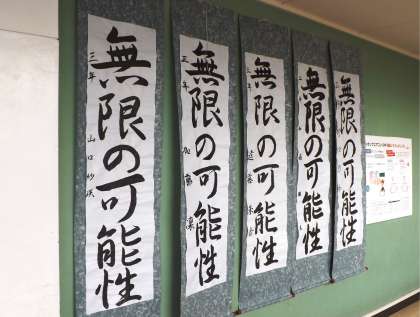 無限の可能性
三年 山口紗咲
無限の可能性
三年 加藤凛
無限の可能性
三年
無限の可能性
無限の可能性